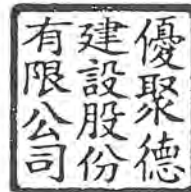 優聚德
建設股份
有限公司